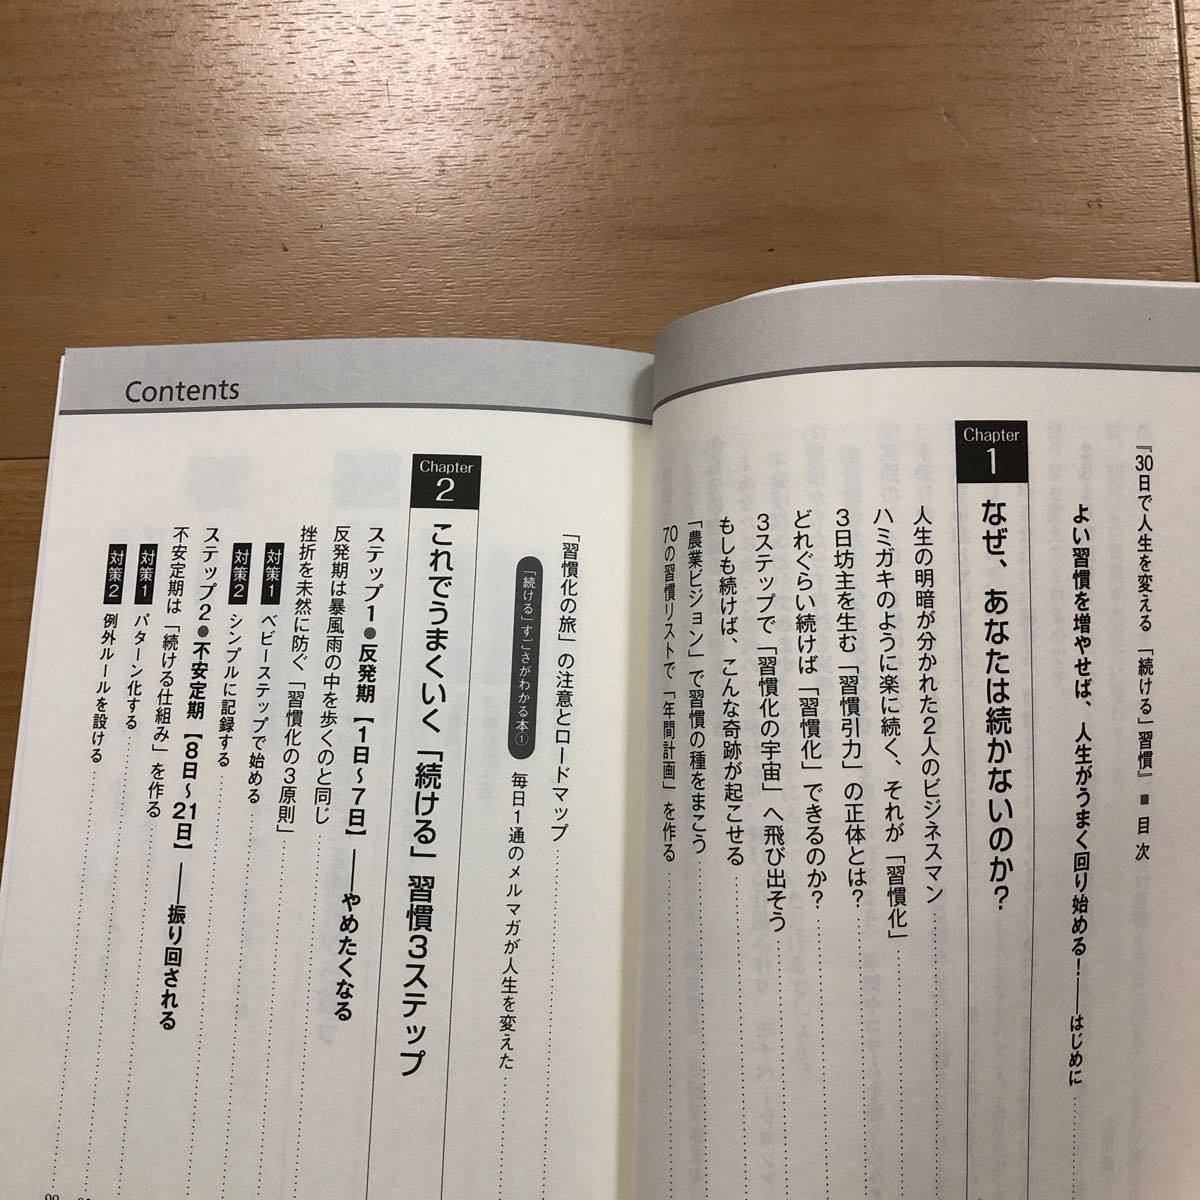 『30日で人生を変える「続ける」習慣』■目次
よい習慣を増やせば、人生がうまく回り始める!――はじめに
Chapter
1
なぜ、あなたは続かないのか?
人生の明暗が分かれた2人のビジネスマン
ハミガキのように楽に続く、それが「習慣化」
3日坊主を生む「習慣引力」の正体とは?
どれぐらい続けば「習慣化」できるのか?
3ステップで「習慣化の宇宙」へ飛び出そう
もしも続けば、こんな奇跡が起こせる
「農業ビジョン」で習慣の種をまこう
70の習慣リストで「年間計画」を作る
Contents
「習慣化の旅」の注意とロードマップ
「続ける」すごさがわかる本① 毎日1通のメルマガが人生を変えた
Chapter
2
これでうまくいく「続ける」習慣3ステップ
ステップ1●反発期【1日〜7日】――やめたくなる
反発期は暴風雨の中を歩くのと同じ
挫折を未然に防ぐ「習慣化の3原則」
対策1 ベビーステップで始める
対策2 シンプルに記録する
ステップ2●不安定期【8日〜21日】――振り回される
不安定期は「続ける仕組み」を作る
対策1 パターン化する
対策2 例外ルールを設ける